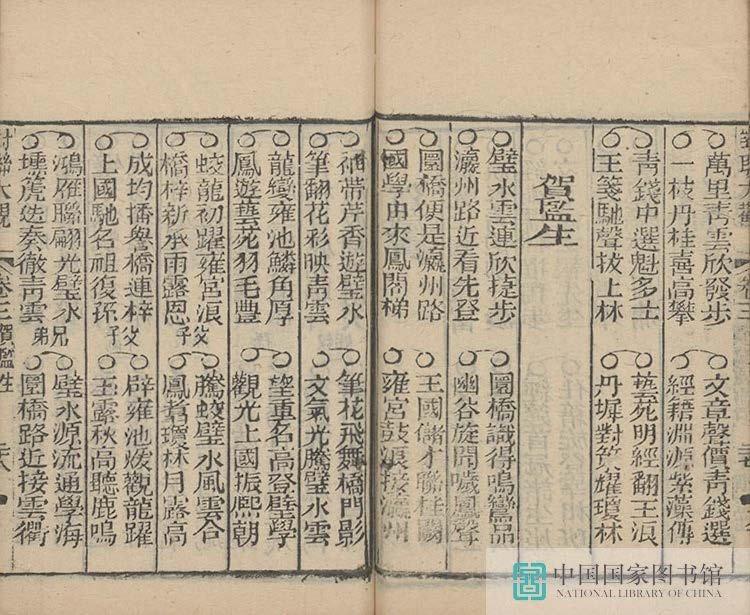 萬里青雲欣發步 文章聲價青錢選
一枝丹桂喜高攀 經籍淵源紫藻傳
青錢中選魁多士 藝苑明經翻玉浪
玉箋馳聲拔上林 丹墀對策耀瓊林
賀監生
璧水雲連欣捷步 圜橋識得鳴鸞品
瀛州路近看先登 幽谷旋聞噦鳳聲
圜橋便是瀛州路 王國儲才聯桂
國學由來鳳閣梯 雍宮鼓浪接瀛州
袖帶芹香遊璧水 筆花飛舞橋門影
筆翻花彩映青雲 文氣光騰璧水雲
龍變雍池鱗角厚 望重名高登璧學
鳳遊藝苑羽毛豐 觀光上國振熙朝
蛟龍初躍雍宮浪父 騰蛟璧水風雲合
橋梓新承雨露恩子 鳳翥瓊林月露高
成均播譽橋連梓父 辟雍池煥觀龍躍
上國馳名祖復孫子 玉露秋高聽鹿鳴
鴻雁聯翩光璧水兄 璧水源流通學海
壎箎迭奏徹青雲弟 圜橋路近接雲衢
對聯大觀 卷三賀監生
中国国家图书馆
NATIONAL LIBRARY OF CHINA